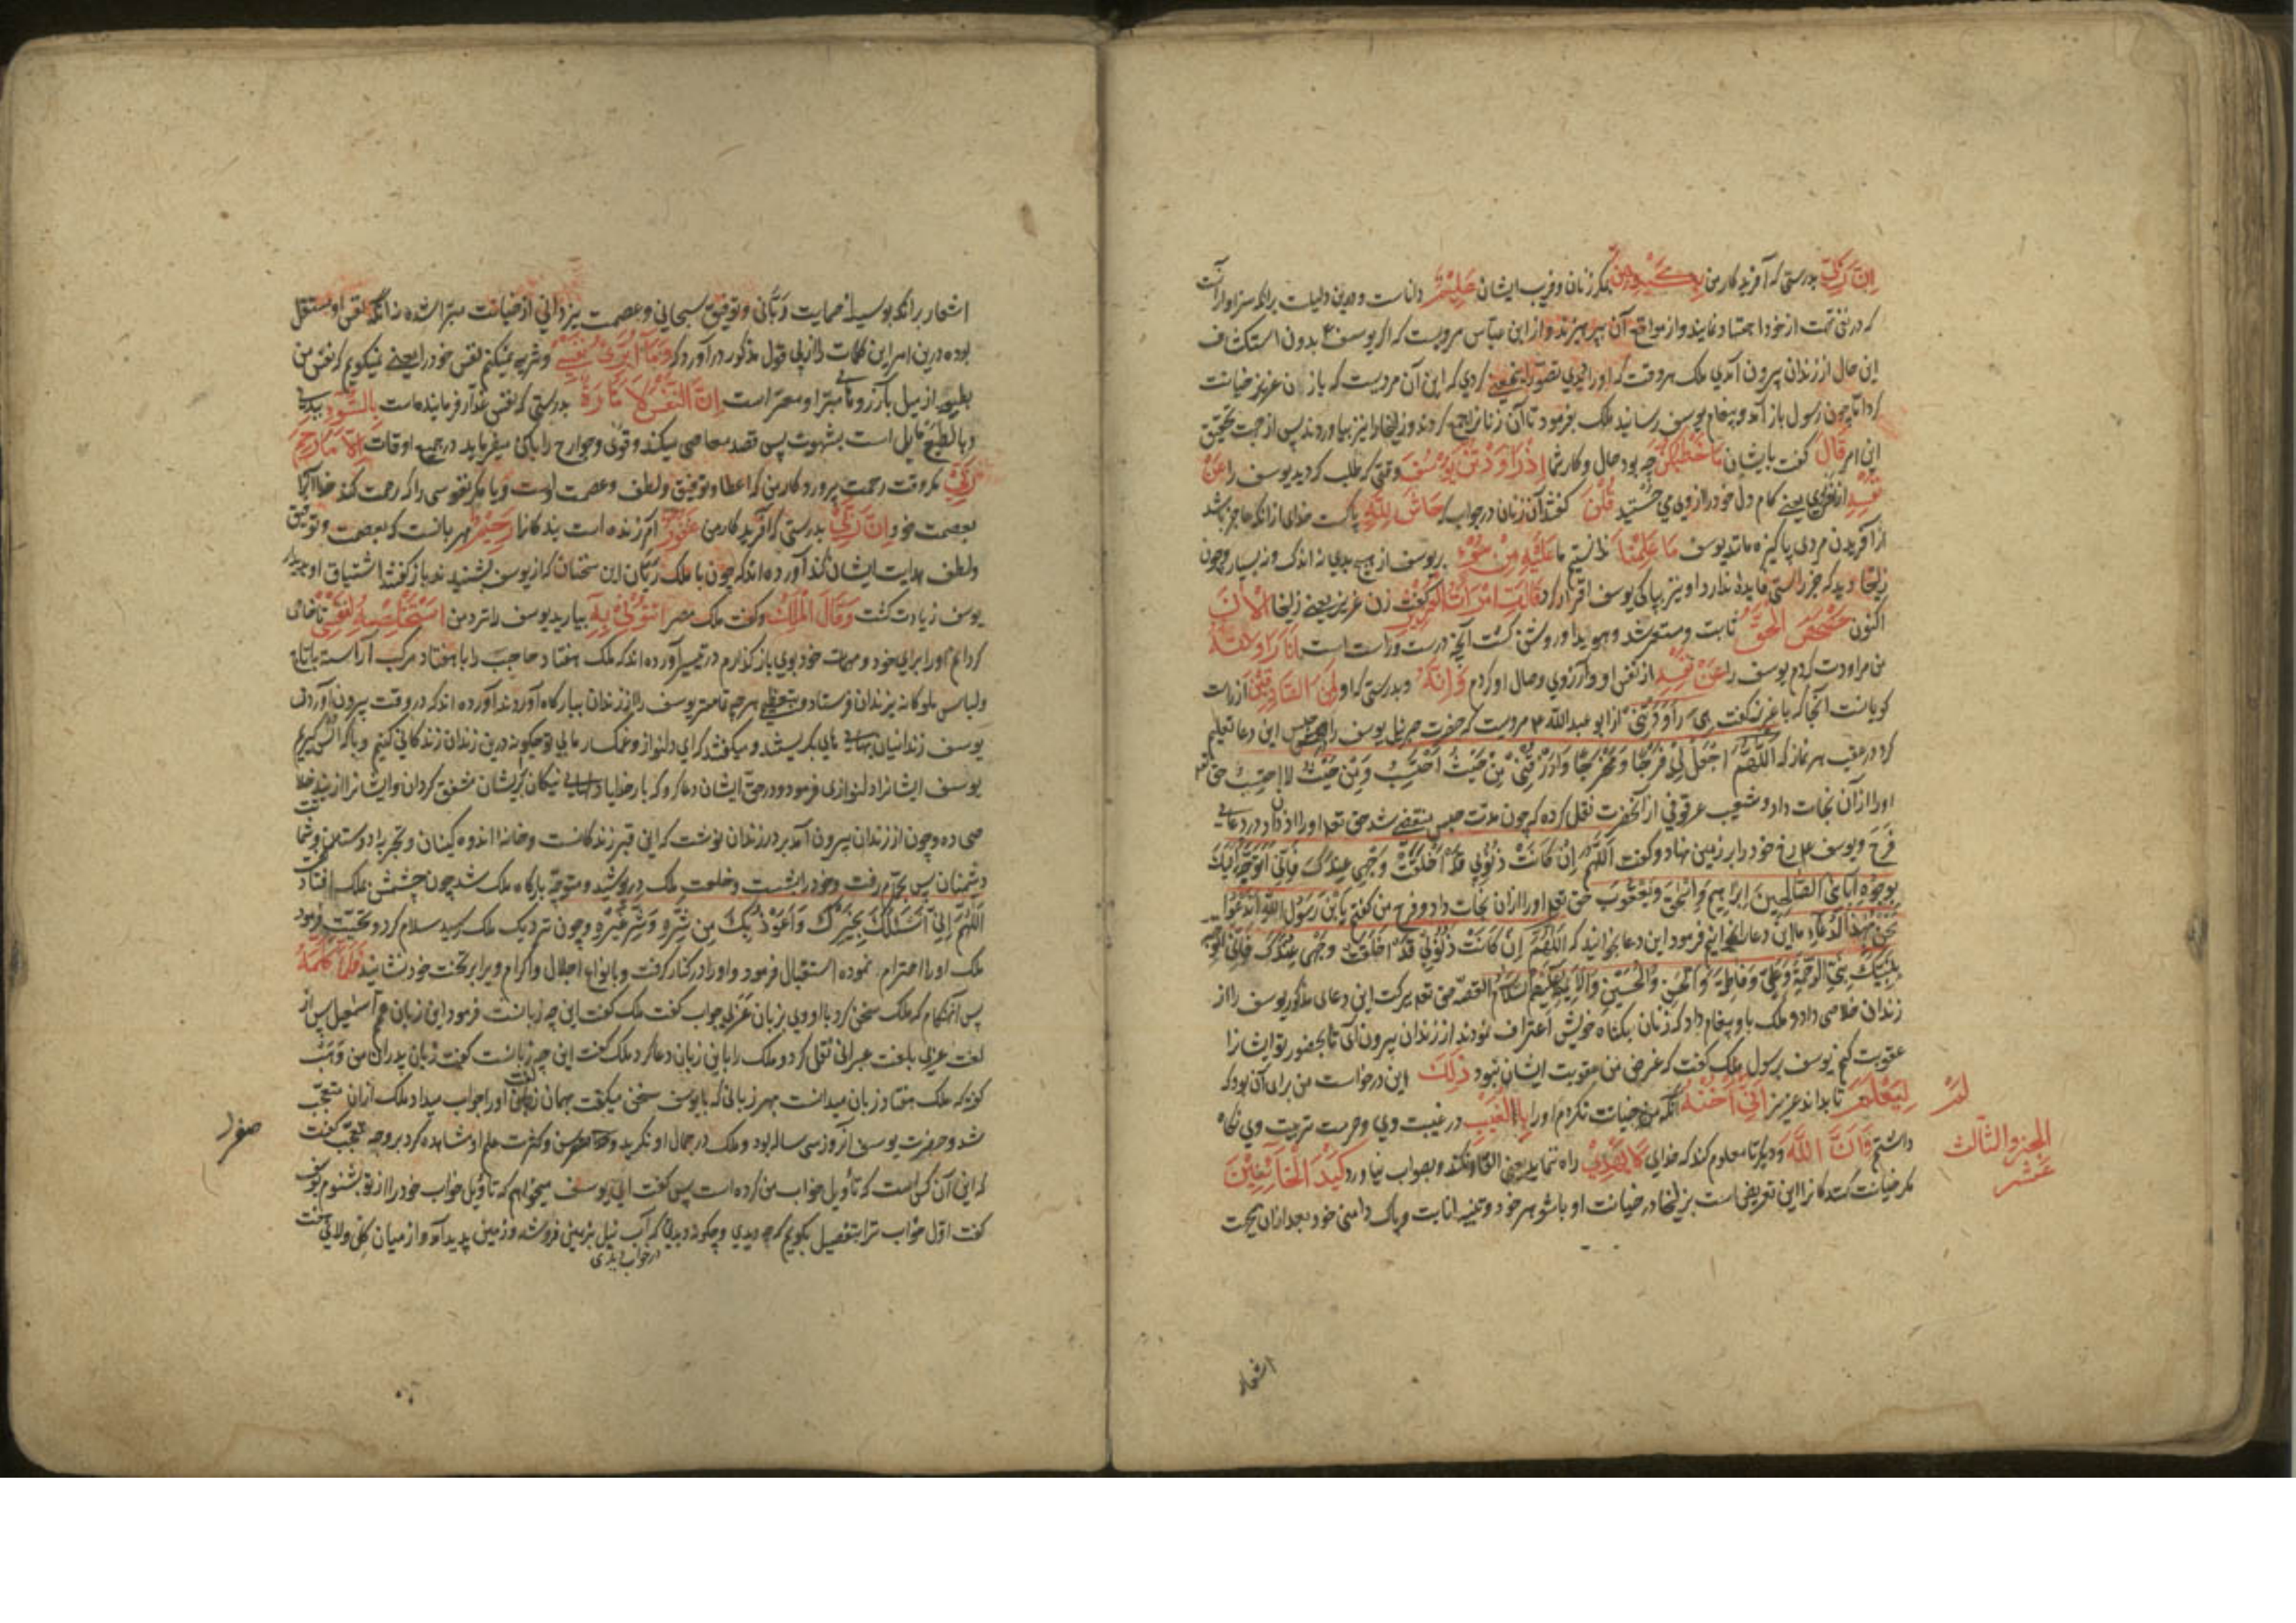 ان ربی بدرستی که آفریدکار من بکیدهن بمکر زنان و فریب ایشان علیم داناست و درین دلیلست برانکه سزاوار آنست
که در نفی تهمت از خود اجتهاد نمایند و از مواقع آن بپرهیزند و از ابن عباس مرویست که اکر یوسف ع بدون استکشاف
این حال از زندان بیرون آمدی ملک هر وقت که او را دیدی تصور کردی که این آن مردیست که با زن عزیز خیانت
کرد تا چون رسول باز آمد و پیغام یوسف رسانید ملک بفرمود تا آن زنانرا جمع کردند و زلیخا را نیز بیاوردند پس از جهت تحقیق
این امر قال کفت بایشان ما خطبکن چه بود حال و کار شما اذ راودتن یوسف وقتی که طلب کردید یوسف را عن
نفسه از نفس وی یعنی کام دل خود را از وی می جستید قلن کفتند آن زنان در جواب که حاش لله پاکست خدای از انکه عاجز باشد
از آفریدن مردی پاکیزه مانند یوسف ما علمنا ندانستیم ما علیه من سوء بر یوسف از هیچ بدی نه اندک و نه بسیار و چون
زلیخا دید که جز راستی فایده ندارد او نیز بپاکی یوسف اقرار کرد قالت امرأت العزیز کفت زن عزیز یعنی زلیخا الآن
اکنون حصحص الحق ثابت و مستقر شد و هویدا و روشن کشت آنچه درست و راست است انا راودته
من مراودت کردم یوسف را عن نفسه از نفس او و آرزوی وصال او کردم وانه و بدرستی که او لمن الصادقین از راست
کویانست آنجا که با عزیز کفت هی راودتنی از ابو عبدالله ع مرویست که حضرت جبرئیل یوسف را در حبس این دعا تعلیم
کرد در عقب هر نماز که اللهم اجعل لی فرجا و مخرجا وارزقنی من حیث احتسب و من حیث لا احتسب حق تع
او را از آن نجات داد و شعیب عرقوفی از آنحضرت نقل کرده که چون مدت حبس منقضی شد حق تعم او را اذن داد در دعای
فرج و یوسف ع رخ خود را بر زمین نهاد و کفت اللهم ان کانت ذنوبی قد اخلقت وجهی عندک فانی اتوجه الیک
بوجوه آبائی الصالحین ابراهیم و اسحق و یعقوب حق تعم او را از آن نجات داد و فرج من کفتم یا بن رسول الله اندعوا
نحن بهذا الدعاء ما این دعا را بخوانیم فرمود این دعا بخوانید که اللهم ان کانت ذنوبی قد اخلقت وجهی عندک فانی اتوجه
بنبیک نبی الرحمة وعلی وفاطمة والحسن والحسین والائمة علیهم السلام القصه حق تعم ببرکت این دعای مذکور یوسف را از
زندان خلاصی داد و ملک باو پیغام داد که زنان بکناه خویش اعتراف نمودند از زندان بیرون آی تا بحضور تو ایشانرا
عقوبت کنم یوسف برسول ملک کفت که غرض من عقوبت ایشان نبود ذلک این درخواست من برای آن بود که
لیعلم تا بداند عزیز انی لم اخنه آنکه من خیانت نکردم او را بالغیب در غیبت وی و حرمت تربیت وی نکاه
داشتم وان الله و دیکر تا معلوم کند که خدای لا یهدی راه ننماید یعنی القا نکند و بصواب نیاورد کید الخائنین
مکر خیانت کنندکانرا این تعریض است بزلیخا در خیانت او با شوهر خود و تنبیه امانت و پاک دامنی خود بعد از آن بجهت
الجزو الثالث
عشر
اشعار
اشعار برانکه بوسیله حمایت ربانی و توفیق سبحانی و عصمت یزدانی از خیانت مبرا شده نه آنکه نفس او مستقل
بوده درین امر این کلمات را از پی قول مذکور در آورد که وما ابرئ نفسی و تنزیه نمیکنم نفس خود را یعنی نمیکویم که نفس من
بطبعه از میل بآرزوها مبرا و معرا است ان النفس لامارة بدرستی که نفس غدار فرماینده است بالسوء ببدی
و بالطبع مایل است بشهوت پس قصد معاصی میکند و قوی و جوارح را بآن میفرماید در جمیع اوقات الا ما رحم
ربی مکر وقت رحمت پروردکار من که اعطاء توفیق و لطف و عصمت اوست و یا مکر نفوسی را که رحمت کند خدا آنرا
بعصمت خود ان ربی بدرستی که آفریدکار من غفور آمرزنده است بندکانرا رحیم مهربانست که بعصمت و توفیق
و لطف هدایت ایشان کند آورده اند که چون با ملک ریان این سخنان که از یوسف بشنیدند باز کفتند اشتیاق او بدیدار
یوسف زیادت کشت وقال الملک و کفت ملک مصر ائتونی به بیارید یوسف را نزد من استخلصه لنفسی تا خاص
کردانم او را برای خود و مهمات خود بوی باز کذارم در تیسیر آورده اند که ملک هفتاد حاجب را با هفتاد مرکب آراسته با تاج
و لباس ملوکانه بزندان فرستاد و بتعظیم هرچه تمامتر یوسف را از زندان ببارکاه آوردند آورده اند که در وقت بیرون آوردن
یوسف زندانیان بهایهای بکریستند و میکفتند که ای دلنواز و غمکسار ما بی تو چکونه درین زندان زندکانی کنیم و با که انس کیریم
یوسف ایشانرا دلنوازی فرمود و در حق ایشان دعا کرد که بار خدایا دلهای نیکان بر ایشان مشفق کردان و ایشانرا از بند خلا
صی ده و چون از زندان بیرون آمد بر در زندان نوشت که این قبر زندکانست و خانه اندوه کینان و تجربه دوستان و شماتت
دشمنان پس بحمام رفت و خود را بشست و خلعت ملک در پوشید و متوجه بارکاه ملک شد چون چشمش بملک افتاد کفت
اللهم انی اسئلک بخیرک واعوذ بک من شره وشر غیره و چون نزدیک ملک رسید سلام کرد و تحیت فرمود
ملک او را احترام نموده استقبال فرمود و او را در کنار کرفت و بانواع اجلال و اکرام و برابر تخت خود نشانید فلما کلمه
پس آنهنکام که ملک سخن کرد با او وی بزبان عربی جواب کفت ملک کفت این چه زبانست فرمود این زبان عم اسمعیل پس از
لغت عربی بلغت عبرانی نقل کرد و ملک را باین زبان دعا کرد ملک کفت این چه زبانست کفت زبان پدران من وهب
کوید که ملک هفتاد زبان میدانست بهر زبانی که با یوسف سخن میکفت بهمان زبان او را جواب میداد ملک از آن متعجب
شد و حضرت یوسف آنروز سی ساله بود و ملک در جمال او نکرید و کثرت علم او مشاهده کرد بر وجه تعجب کفت
که این آن کس است که تأویل خواب من کرده است پس کفت ای یوسف میخواهم که تأویل خواب خود را از تو بشنوم یوسف
کفت اول خواب ترا بتفصیل بکویم که چه دیدی و چکونه دیدی که آب نیل بزمین فروشد و زمین پدید آمد و از میان کل و لای هفت
در خواب دیدی